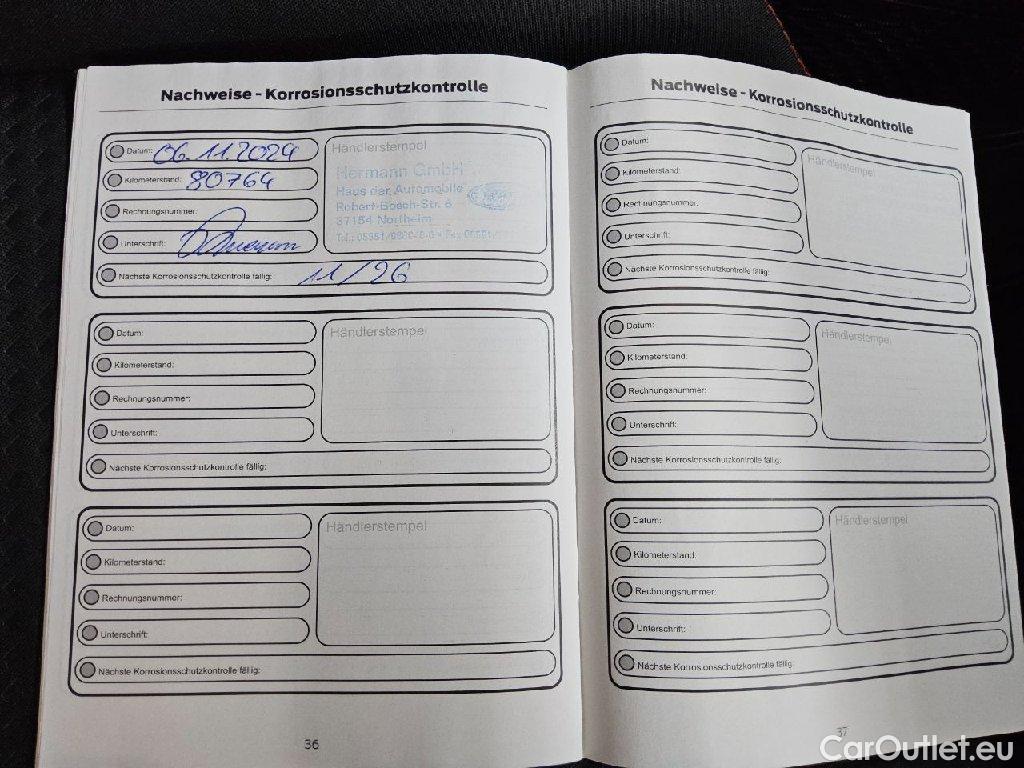 Nachweise - Korrosionsschutzkontrolle
Datum: 06.11.2024
Kilometerstand: 80764
Rechnungsnummer:
Unterschrift:
Nächste Korrosionsschutzkontrolle fällig: 11/26
Händlerstempel
Hermann GmbH
Haus der Automobile
Robert-Bosch-Str. 6
37154 Northeim
Datum:
Kilometerstand:
Rechnungsnummer:
Unterschrift:
Nächste Korrosionsschutzkontrolle fällig:
Händlerstempel
Datum:
Kilometerstand:
Rechnungsnummer:
Unterschrift:
Nächste Korrosionsschutzkontrolle fällig:
Händlerstempel
36
Nachweise - Korrosionsschutzkontrolle
Datum:
Kilometerstand:
Rechnungsnummer:
Unterschrift:
Nächste Korrosionsschutzkontrolle fällig:
Händlerstempel
Datum:
Kilometerstand:
Rechnungsnummer:
Unterschrift:
Nächste Korrosionsschutzkontrolle fällig:
Händlerstempel
Datum:
Kilometerstand:
Rechnungsnummer:
Unterschrift:
Nächste Korrosionsschutzkontrolle fällig:
Händlerstempel
37
CarOutlet.eu